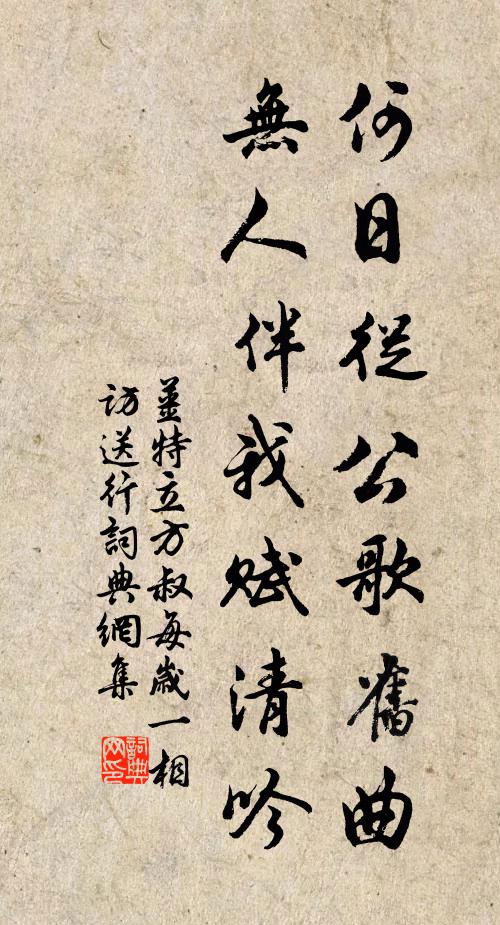 何日從公歌舊曲
無人伴我賦清吟
姜特立方叔每歲一相
訪送行詞典網集
詞典網印